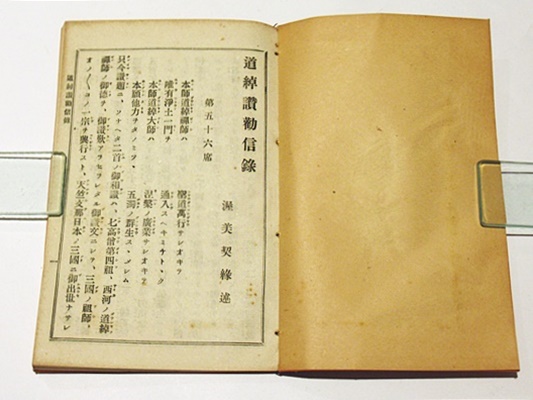 道綽讃勸信錄
渥美契緣述
第五十六席
本師道綽禪師ハ 聖道萬行サシオキテ
唯有淨土一門ヲ 通入スヘキミチトトク
本師道綽大師ハ 涅槃ノ廣業サシオキテ
本願他力ヲタノミツヽ 五濁ノ群生スヽメシム
只今讃題ニ、ツナヘタ二首ノ御和讃ハ、七高僧第四祖、西河ノ道綽
禪師ノ御德ヲ、御讃歎アラセラレタル御讃文ニシテ、三國ノ祖師、
オノ〱コノ一宗ヲ興行スト、天竺支那日本ノ三國ニ御出世ナサレ
道綽讃勸信錄